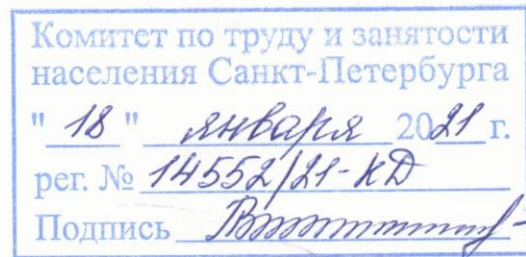 Комитет по труду и занятости
населения Санкт-Петербурга
"18" января 2021 г.
рег. № 14552/21-КД
Подпись